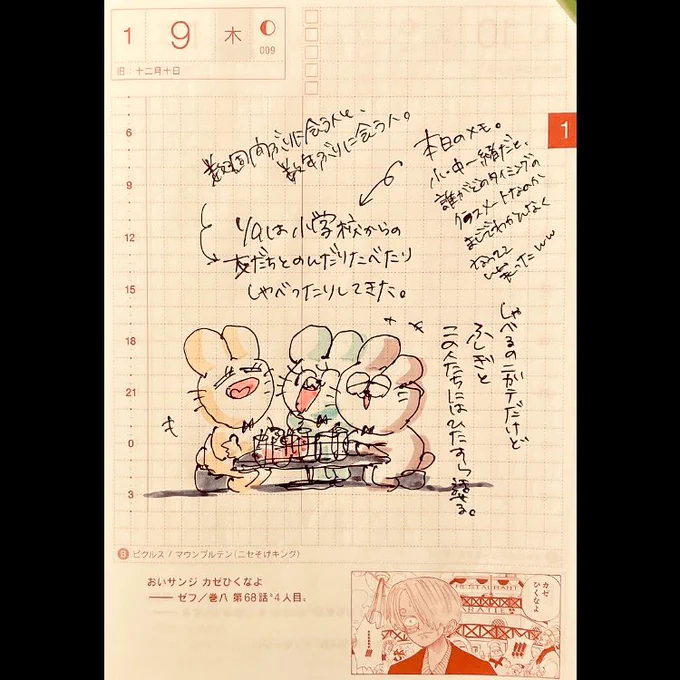 1 9 木
009
旧:十二月十日
1
6
9
12
15
18
21
0
3
数年ぶりに会う人。
本日のメモ。
小・中一緒だと、
誰がどのタイミングの
クラスメートなのか
まじでわかんなく
なってて
笑ったww
1/9は小学校からの
友だちとのんだりたべたり
しゃべったりしてきた。
しゃべるのニガテだけど
ふしぎと
この人たちにはひたすら話せる。
B ピクルス / マウンブルテン(ニセそげキング)
おいサンジ カゼひくなよ
—— ゼフ/巻八 第68話“4人目„
カゼ
ひくなよ
RESTAURANT
BARATIE
………!!!
!!!